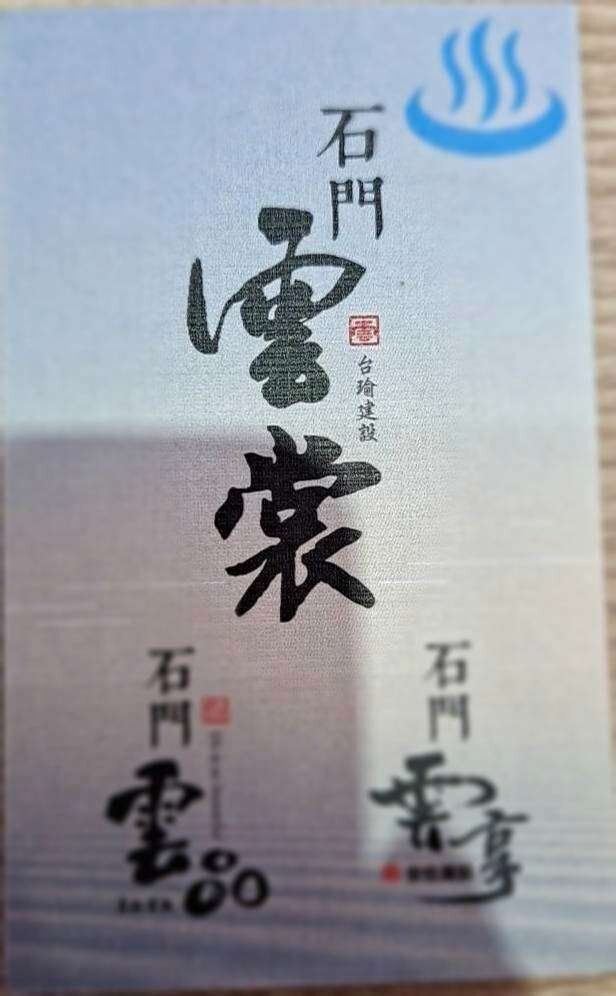 石門
雲裳
台瑜建設
石門
雲品
石門
雲享